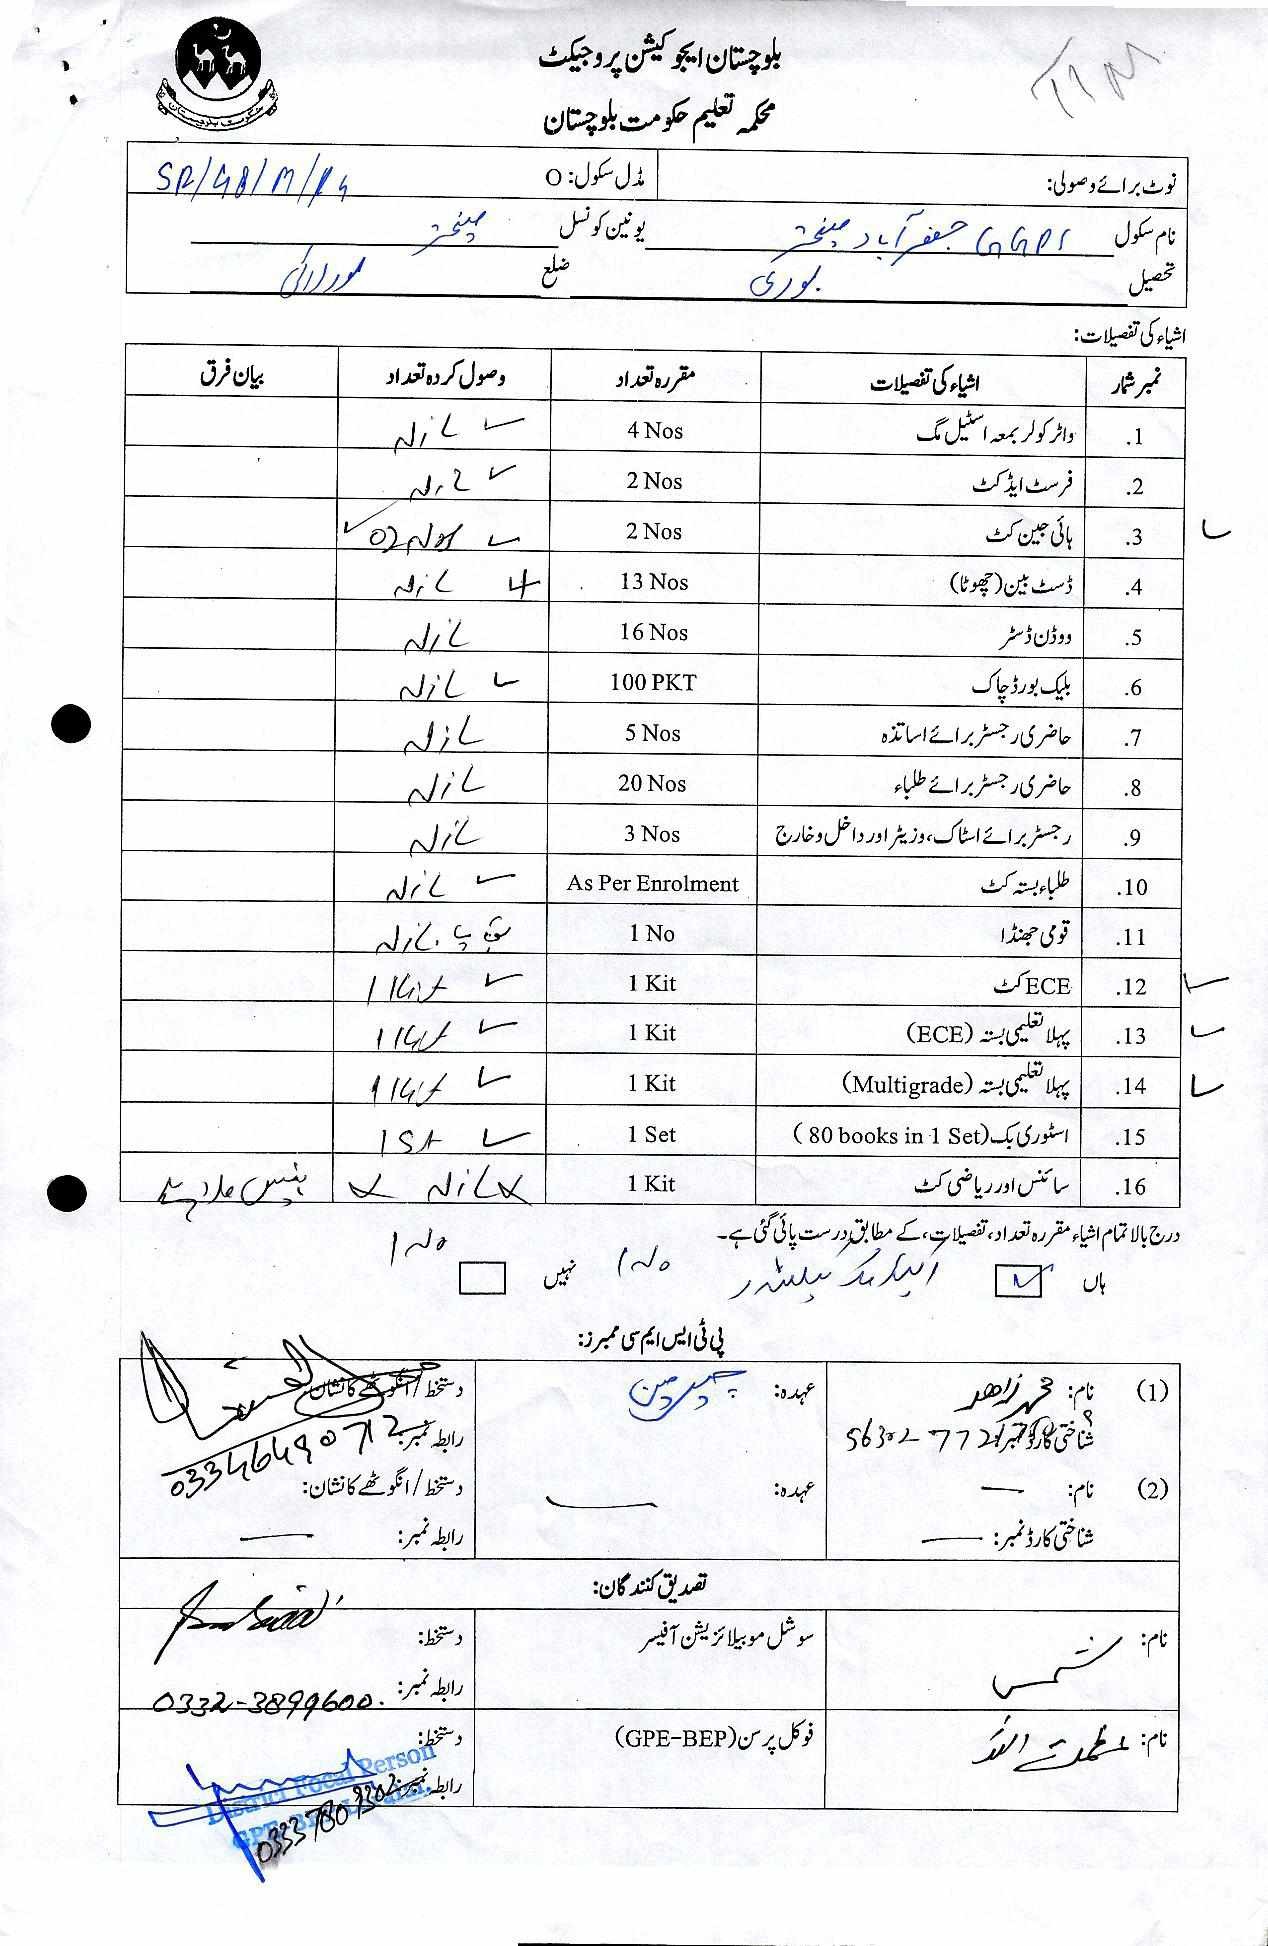 بلوچستان ایجوکیشن پروجیکٹ
محکمہ تعلیم حکومت بلوچستان
نوٹ برائے وصولی: مڈل سکول: O
نام سکول GGPS جعفر آباد یونین کونسل
تحصیل بوری ضلع لورالائی
اشیاء کی تفصیلات:
نمبر شمار اشیاء کی تفصیلات مقررہ تعداد وصول کردہ تعداد بیان فرق
1. واٹر کولر بمعہ اسٹیل مگ 4 Nos Nil
2. فرسٹ ایڈ کٹ 2 Nos Nil
3. ہائی جین کٹ 2 Nos 02 Nos
4. ڈسٹ بین (چھوٹا) 13 Nos Nil
5. ووڈن ڈسٹر 16 Nos Nil
6. بلیک بورڈ چاک 100 PKT Nil
7. حاضری رجسٹر برائے اساتذہ 5 Nos Nil
8. حاضری رجسٹر برائے طلباء 20 Nos Nil
9. رجسٹر برائے اسٹاک، وزیٹر اور داخل و خارج 3 Nos Nil
10. طلباء بستہ کٹ As Per Enrolment Nil
11. قومی جھنڈا 1 No Nil
12. ECE کٹ 1 Kit 1 Kit
13. پہلا تعلیمی بستہ (ECE) 1 Kit 1 Kit
14. پہلا تعلیمی بستہ (Multigrade) 1 Kit 1 Kit
15. اسٹوری بک (80 books in 1 Set) 1 Set 1 Set
16. سائنس اور ریاضی کٹ 1 Kit Nil
درج بالا تمام اشیاء مقررہ تعداد، تفصیلات، کے مطابق درست پائی گئی ہے۔
ہاں نہیں
پی ٹی ایس ایم سی ممبرز:
(1) نام: محمد زاھد عہدہ: چیئرمین دستخط / انگوٹھے کا نشان:
شناختی کارڈ نمبر: رابطہ نمبر: 03346490712
(2) نام: عہدہ: دستخط / انگوٹھے کا نشان:
شناختی کارڈ نمبر: رابطہ نمبر:
تصدیق کنندگان:
نام: شمس سوشل موبیلائزیشن آفیسر دستخط:
رابطہ نمبر: 0332-3899600
نام: عظمت اللہ فوکل پرسن (GPE-BEP) دستخط:
رابطہ نمبر:
District Focal Person